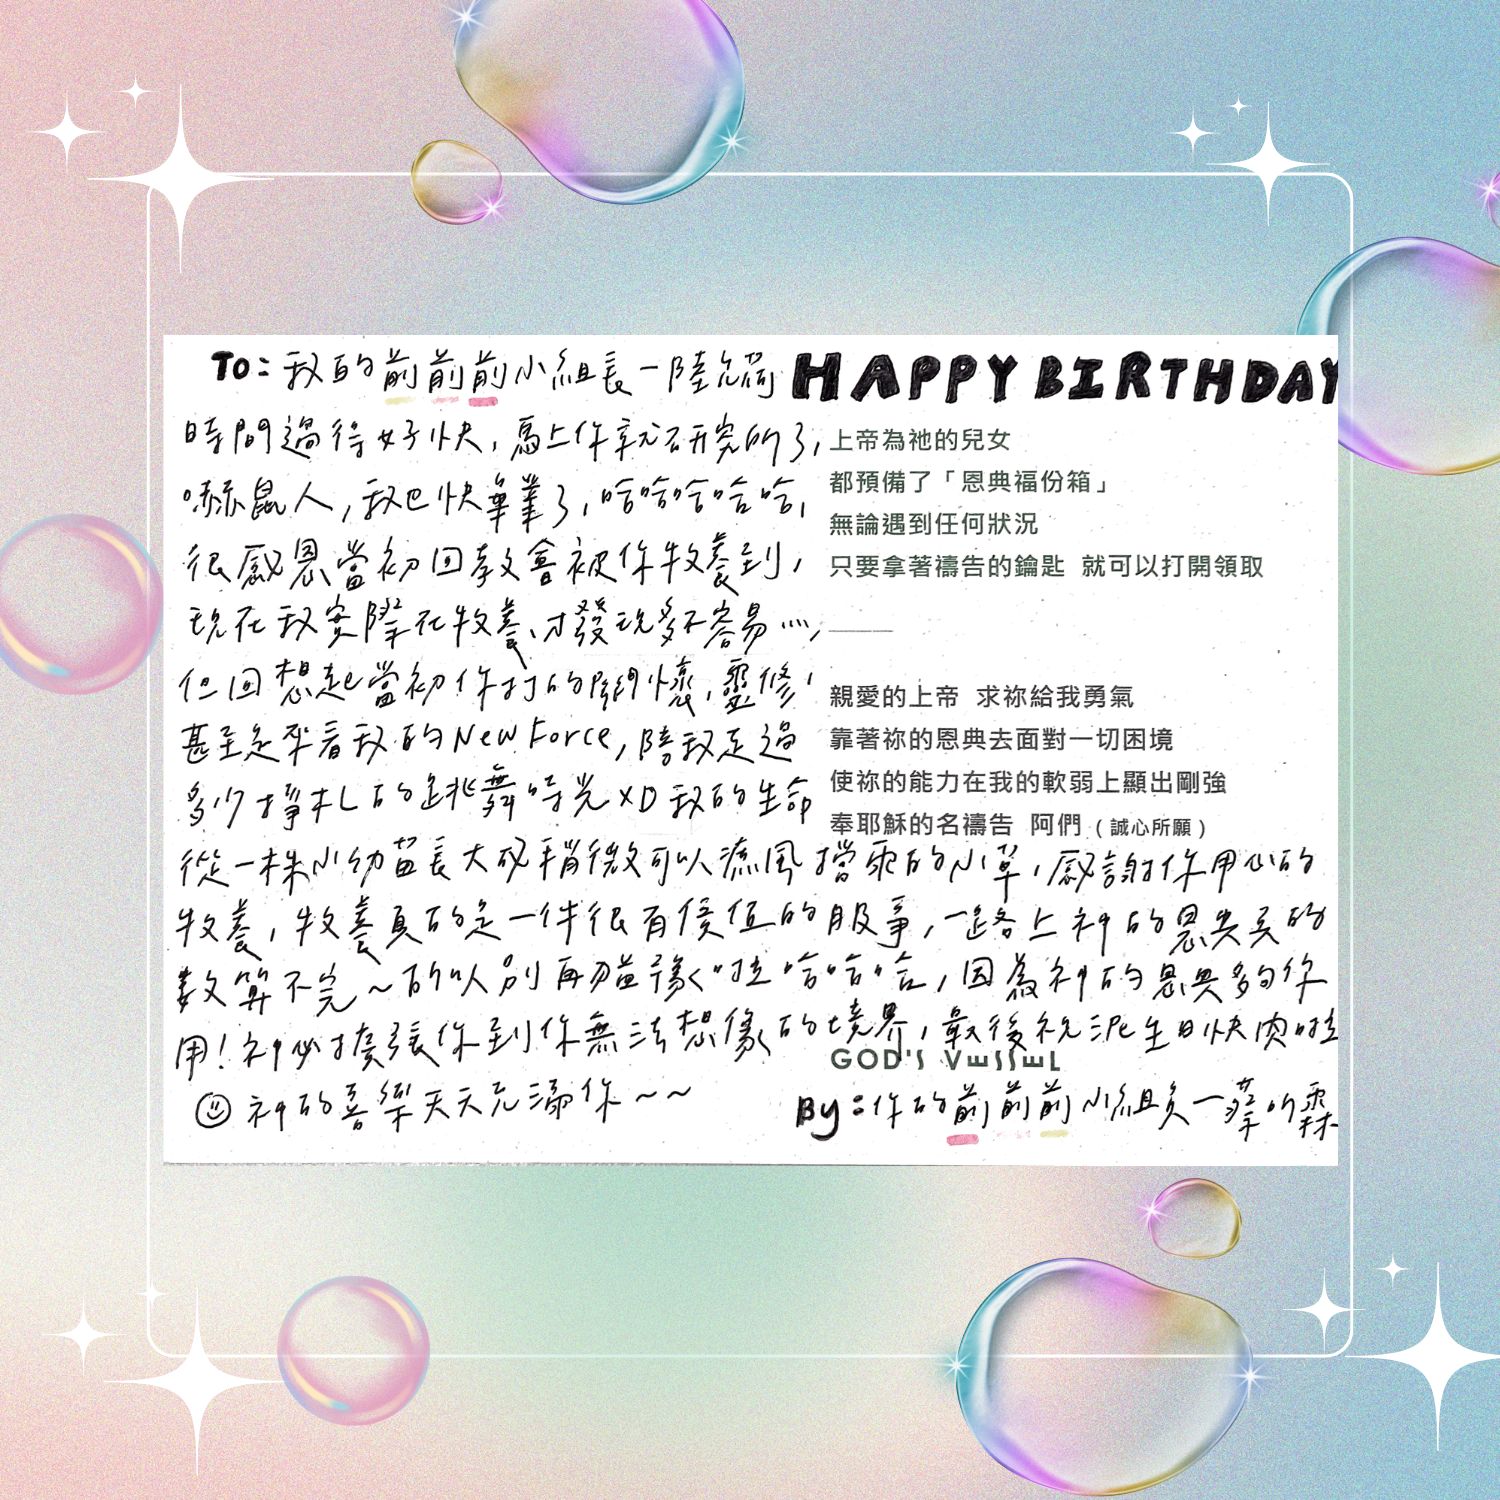 TO：我的前前前小組長－陸允荷
HAPPY BIRTHDAY
時間過得好快，馬上你就研究所了，
嚇鼠人，我也快畢業了，哈哈哈哈哈，
很感恩當初回教會被你牧養到，
現在我實際在牧養，才發現多不容易…，
但回想起當初你打的關懷，靈修，
甚至是來看我的New Force，陪我走過
多少掙扎的跳舞時光XD 我的生命
從一株小幼苗長大成稍微可以遮風擋雨的小草，感謝你用心的
牧養，牧養真的是一件很有價值的服事，一路上神的恩典真的
數算不完～所以別再猶豫啦哈哈哈，因為神的恩典夠你
用！神必擴張你到你無法想像的境界，最後祝泥生日快肉啦
神的喜樂天天充滿你～～
By：你的前前前小組員－蔡昀霖
上帝為祂的兒女
都預備了「恩典福份箱」
無論遇到任何狀況
只要拿著禱告的鑰匙 就可以打開領取
親愛的上帝 求祢給我勇氣
靠著祢的恩典去面對一切困境
使祢的能力在我的軟弱上顯出剛強
奉耶穌的名禱告 阿們（誠心所願）
GOD'S VESSEL